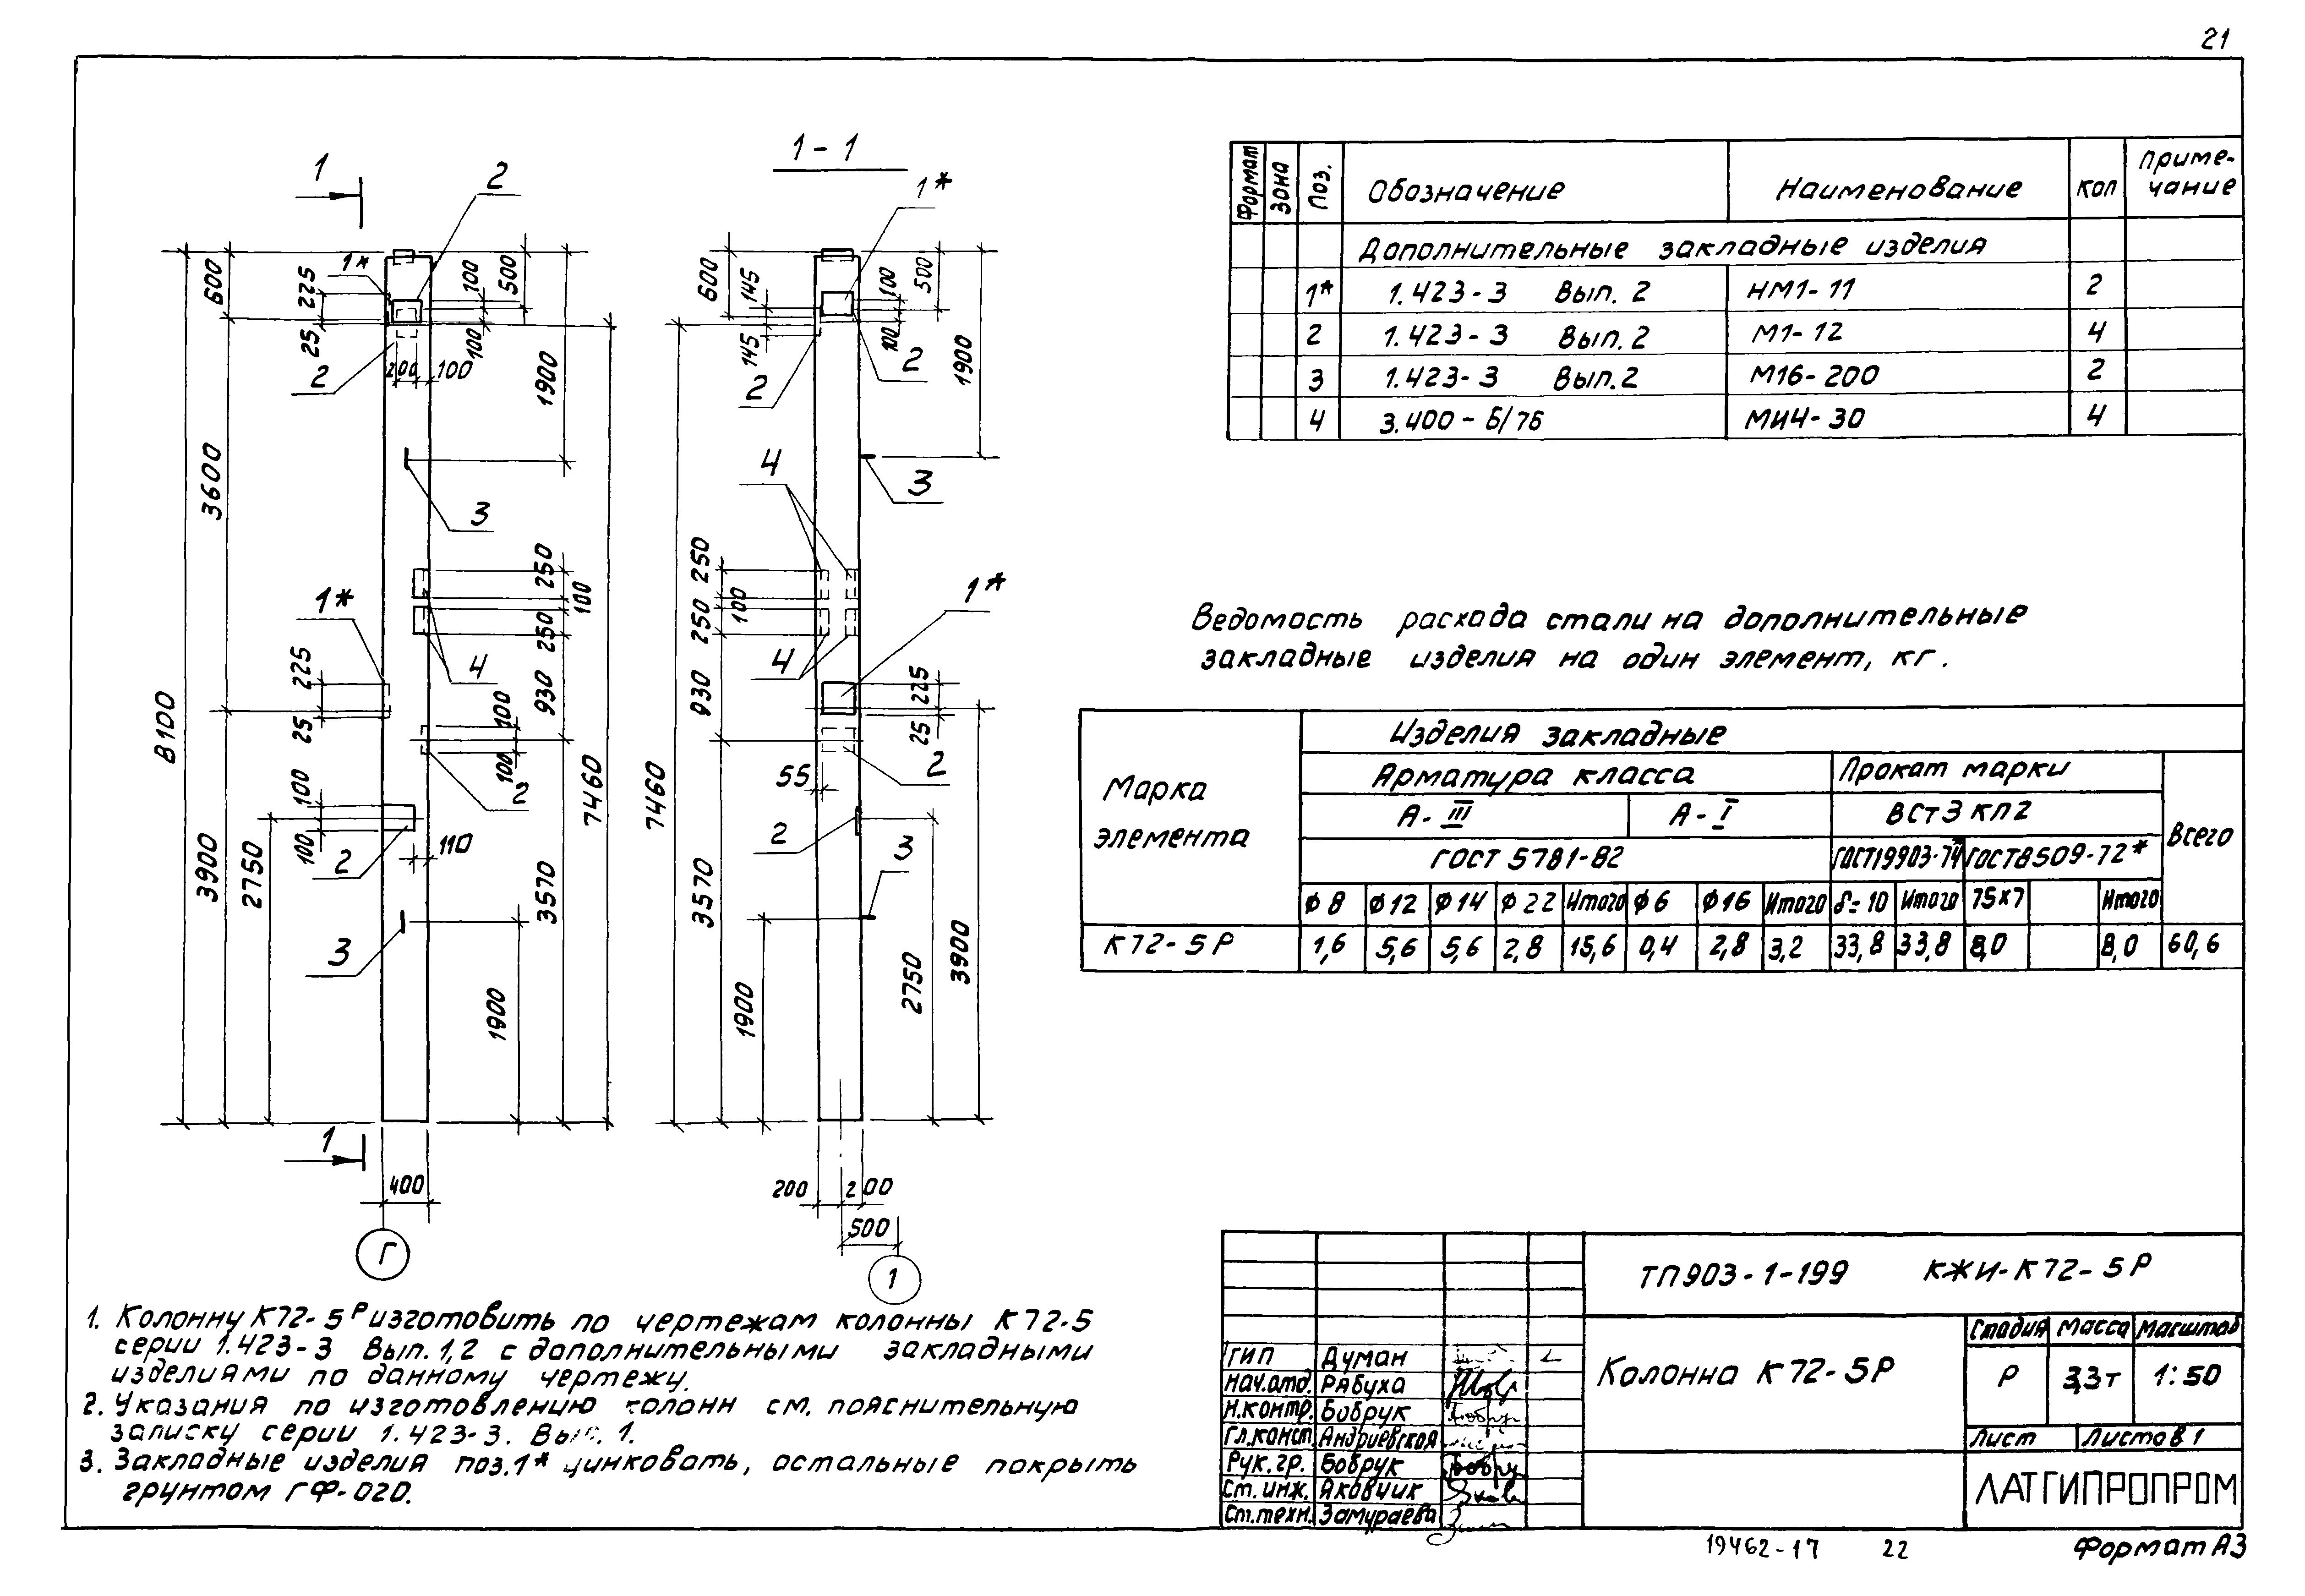 21
1
2
1-1
1*
1*
600
225
25
100
500
100
2
200
100
1900
3600
3
8100
1*
225
25
4
250
100
250
930
100
100
2
100
100
2
110
3900
2750
7460
3570
3
1900
1
400
Г
600
145
145
100
500
100
2
2
1900
4
3
250
100
250
1*
4
930
225
25
2
55
7460
2
3
3570
1900
2750
3900
200
200
500
1
Формат
Зона
Поз.
Обозначение
Наименование
Кол
Приме-
чание
Дополнительные закладные изделия
1* 1.423-3 Вып. 2 НМ1-11 2
2 1.423-3 Вып. 2 М1-12 4
3 1.423-3 Вып. 2 М16-200 2
4 3.400-6/76 МИ4-30 4
Ведомость расхода стали на дополнительные
закладные изделия на один элемент, кг.
Марка
элемента
Изделия закладные
Арматура класса
Прокат марки
А-III
А-I
ВСт3 кп2
Всего
ГОСТ 5781-82
ГОСТ19903-74*
ГОСТ8509-72*
ф8 ф12 ф14 ф22 Итого ф6 ф16 Итого δ=10 Итого 75х7 Итого
К72-5Р 1,6 5,6 5,6 2,8 15,6 0,4 2,8 3,2 33,8 33,8 8,0 8,0 60,6
1. Колонну К72-5Р изготовить по чертежам колонны К72-5
серии 1.423-3 Вып. 1,2 с дополнительными закладными
изделиями по данному чертежу.
2. Указания по изготовлению колонн см. пояснительную
записку серии 1.423-3. Вып. 1.
3. Закладные изделия поз.1* цинковать, остальные покрыть
грунтом ГФ-020.
ТП903-1-199 КЖИ-К72-5Р
Колонна К72-5Р
Стадия Масса Масштаб
Р 3,3т 1:50
Лист Листов 1
ЛАТГИПРОПРОМ
ГИП Думан
Нач.отд. Рябуха
Н.контр. Бобрук
Гл.конст. Андриевская
Рук.гр. Бобрук
Ст.инж. Яковчик
Ст.техн. Замураева
19462-17 22
Формат А3